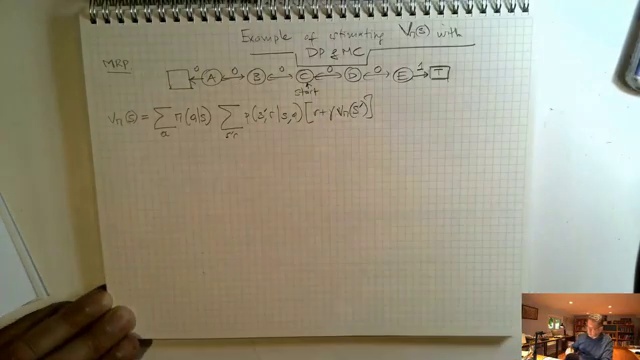 Example of estimating Vπ(s) with
DP & MC
MRP
0 A 0 B 0 C 0 D 0 E 1 T
start
Vπ(s) = Σ π(a|s) Σ p(s',r|s,a) [r + γ Vπ(s')]
a s',r